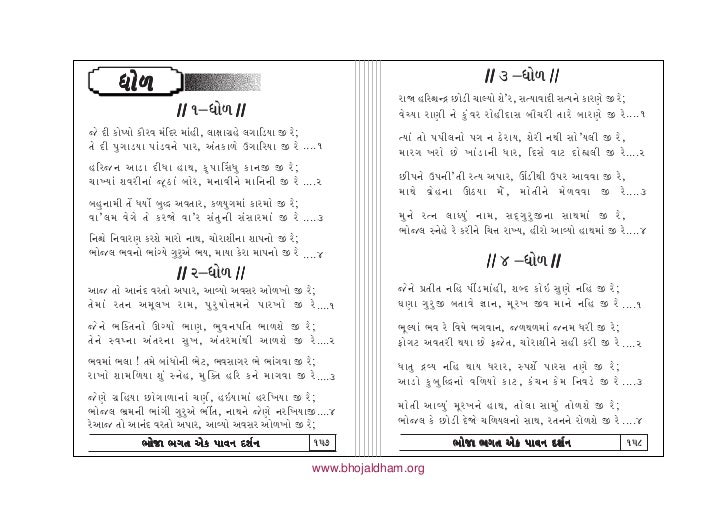 ધોળ
// ૧–ધોળ //
જે દી કોપ્યો કૌરવ મંદિર માંહી, લાક્ષાગ્રહે લગાડિયા જી રે;
તે દી પુગાડયા પાંડવને પાર, અંતકાળે ઉગારિયા જી રે ....૧
હરિજન આડા દીધા હાથ, કૃપાસિંધુ કાનજી જી રે;
ચાખ્યાં શવરીનાં જૂઠાં બોર, મનાવીને માનિની જી રે ....૨
બહુનામી તેં ધર્યો બુદ્ધ અવતાર, કળયુગમાં કારમો જી રે;
વા'લમ વેગે તે કરજો વા'ર સંતુની સંસારમાં જી રે ....૩
નિશ્ચે નિવારણ કરશે મારો નાથ, ચોરાશીના શાપનો જી રે;
ભોજલ ભવનો ભાંગ્યે ગુરુએ ભય, માયા કેરા માપનો જી રે ....૪
// ૨–ધોળ //
આજ તો આનંદ વરતો અપાર, આવ્યો અવસર ઓળખો જી રે;
તેમાં રતન અમૂલખ રામ, પુરુષોત્તમને પારખો જી રે ....૧
જેને ભક્તિનો ઊગ્યો ભાણ, ભુવનપતિ ભાળશે જી રે;
તેને સ્વપ્ના અંતરના સુખ, અંતરમાંથી આળશે જી રે.....૨
ભવમાં ભલા ! તમે બાંધોની ભેટ, ભવસાગર ભે ભાંગવા જી રે;
રાખો શામળિયા શું સ્નેહ, મુક્તિ હરિ કને માગવા જી રે ....૩
જેણે ગ્રહિયા છોગાળાનાં ચર્ણ, હઈયામાં હરખિયા જી રે;
ભોજલ ભ્રમની ભાંગી ગુરુએ ભીંત, નાથને જેણે નરખિયાજી....૪
રેઆજ તો આનંદ વરતો અપાર, આવ્યો અવસર ઓળખો જી રે;
ભોજા ભગત એક પાવન દર્શન ૧૫૭
// ૩ –ધોળ //
રાજા હરિશ્ચન્દ્ર છોડી ચાલ્યો શે'ર, સત્યવાદી સત્યને કારણે જી રે;
વેચ્યા રાણી ને કુંવર રોહીદાસ બૌચરી તારે બારણે જી રે....૧
ત્યાં તો પપીલનો પગ ન ઠેરાય, શેરી નથી સો'યલી જી રે,
મારગ ખરાં છે ખાંડાની ધાર, દિસે વાટ દોહ્યલી જી રે....૨
છીપને ઉપની'તી રત્ય અપાર, ઊંડીથી ઉપર આવવા જી રે,
માથે વ્રેહના ઊઠયા મેં, મોતીને મેળવવા જી રે....૩
મુને રત્ન લાધ્યું નામ, સદ્‌ગુરુજીના સાથમાં જી રે,
ભોજલ સ્નેહે રે કરીને ચિત્ત રાખ્ય, હીરો આવ્યો હાથમાં જી રે ....૪
// ૪ –ધોળ //
જેને પ્રતીત નહિ પીંડમાંહી, શબ્દ કોઈ સુણે નહિ જી રે;
ઘણા ગુરુજી બતાવે જ્ઞાન, મૂરખ જીવ માને નહિ જી રે ....૧
ભૂલ્યાં ભવ રે વિષે ભગવાન, જળથળમાં જનમ ધરી જી રે;
ફોગટ અવતરી થયા છે ફજેત, ચોરાશીને સહી કરી જી રે ....૨
ધાતુ દ્રવ્ય નહિ થાય ધરાર, સ્પર્શે પારસ તણે જી રે;
આડો કુબુદ્ધિનો વળિયો કાટ, કંચન કેમ નિવડે જી રે ....૩
મોતી આવ્યું મૂરખને હાથ, તોલા સામું તોળશે જી રે;
ભોજલ કે છોડી દેજો ચળિયલનો સાથ, રતનને રોળશે જી રે ....૪
ભોજા ભગત એક પાવન દર્શન ૧૫૮
www.bhojaldham.org